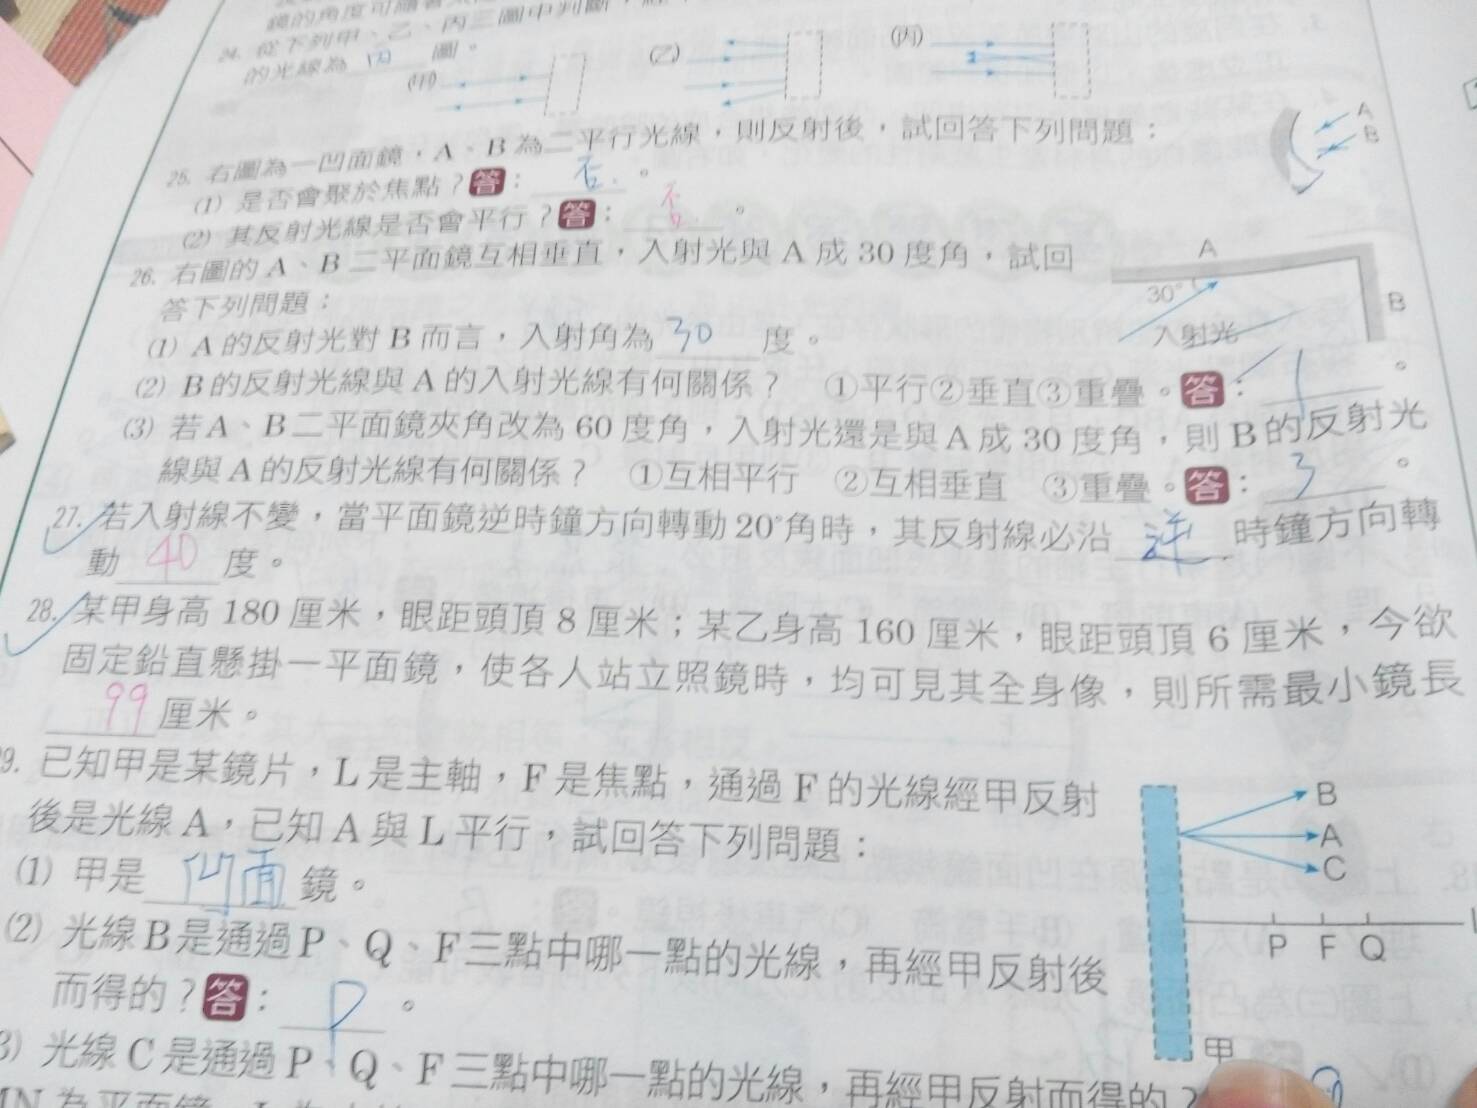 鏡的角度可隨著
24. 從下列甲、乙、丙三圖中判斷,
的光線為 丙 圖。
(甲)
(乙)
(丙)
25. 右圖為一凹面鏡,A、B為二平行光線,則反射後,試回答下列問題:
(1) 是否會聚於焦點?答: 否 。
(2) 其反射光線是否會平行?答: 否 。
A
B
26. 右圖的 A、B 二平面鏡互相垂直,入射光與 A 成 30 度角,試回
答下列問題:
(1) A 的反射光對 B 而言,入射角為 30 度。
(2) B 的反射光線與 A 的入射光線有何關係? ①平行②垂直③重疊。答: 1 。
(3) 若 A、B 二平面鏡夾角改為 60 度角,入射光還是與 A 成 30 度角,則 B 的反射光
線與 A 的反射光線有何關係? ①互相平行 ②互相垂直 ③重疊。答: 3 。
A
30°
B
入射光
27. 若入射線不變,當平面鏡逆時鐘方向轉動 20°角時,其反射線必沿 逆 時鐘方向轉
動 40 度。
28. 某甲身高 180 厘米,眼距頭頂 8 厘米;某乙身高 160 厘米,眼距頭頂 6 厘米,今欲
固定鉛直懸掛一平面鏡,使各人站立照鏡時,均可見其全身像,則所需最小鏡長
99 厘米。
9. 已知甲是某鏡片,L 是主軸,F 是焦點,通過 F 的光線經甲反射
後是光線 A,已知 A 與 L 平行,試回答下列問題:
(1) 甲是 凹面 鏡。
(2) 光線 B 是通過 P、Q、F 三點中哪一點的光線,再經甲反射後
而得的?答: P 。
3) 光線 C 是通過 P、Q、F 三點中哪一點的光線,再經甲反射而得的?
B
A
C
P F Q
甲